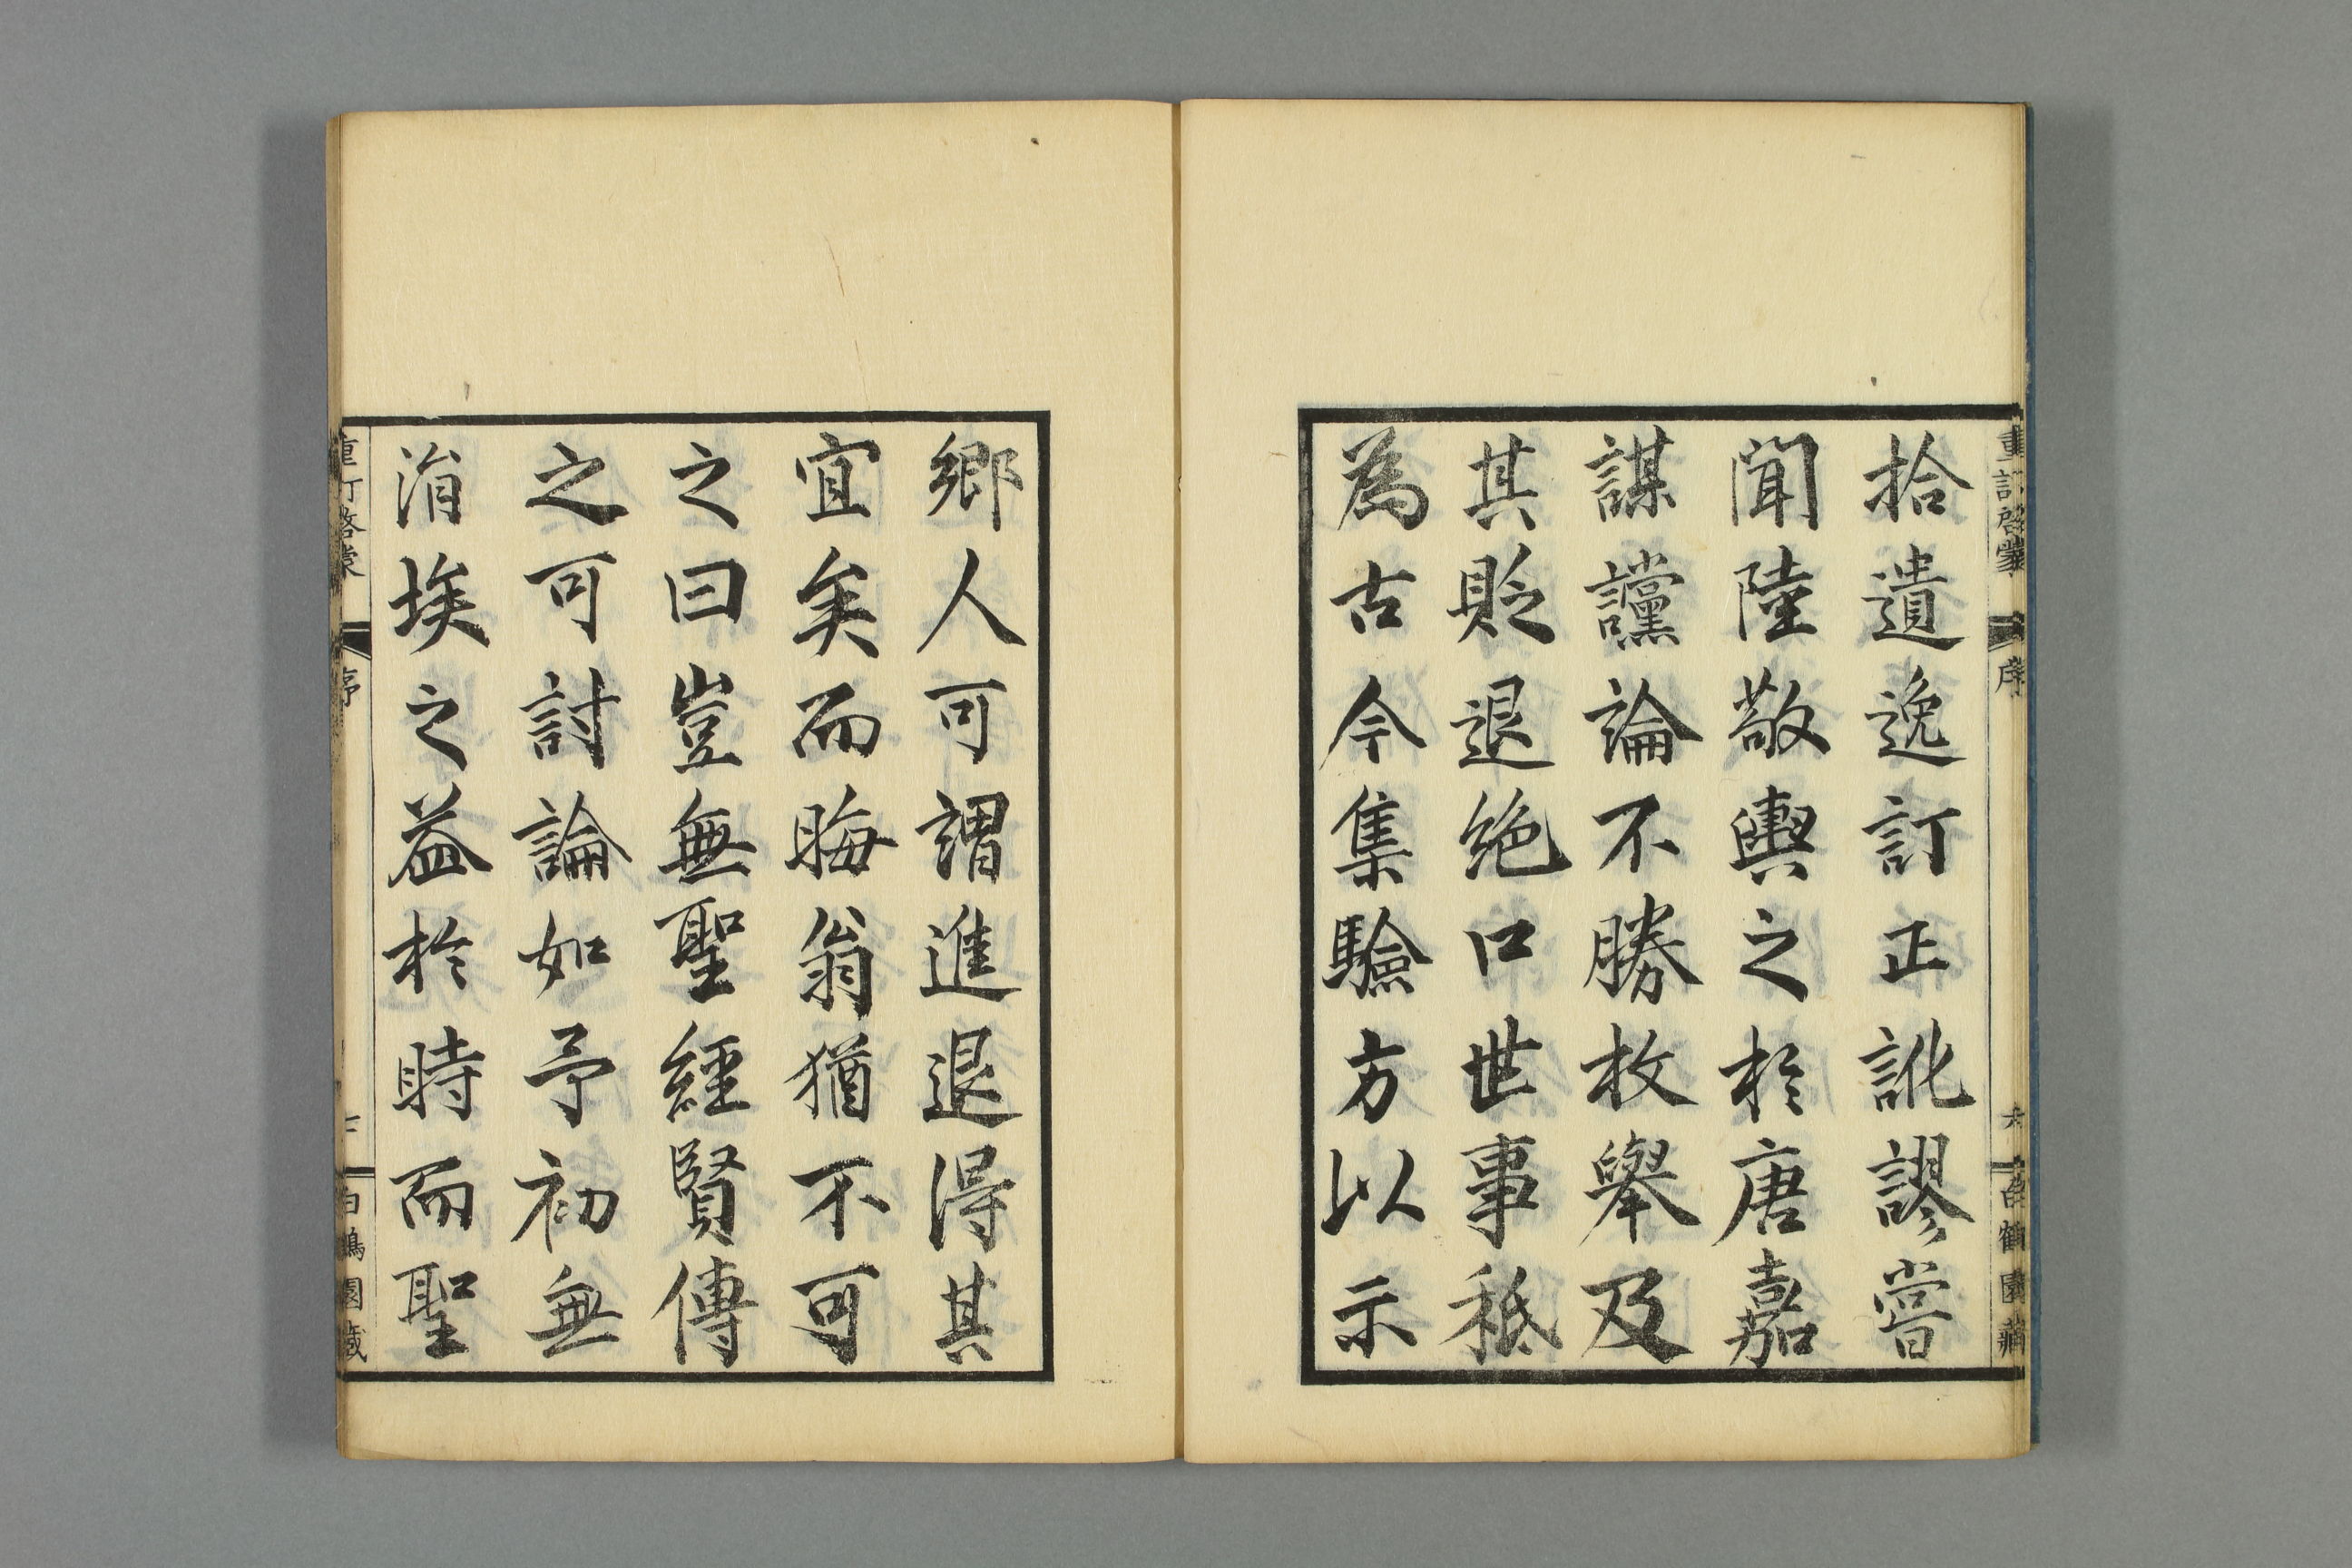 重訂啓蒙 序 六 白鶴園藏
拾遺逸訂正訛謬嘗
聞陸敬輿之於唐嘉
謀讜論不勝枚舉及
其貶退絶口世事秪
為古今集驗方以示
鄉人可謂進退得其
宜矣而晦翁猶不可
之曰豈無聖經賢傳
之可討論如予初無
涓埃之益於時而聖
重訂啓蒙 序 白鶴園藏